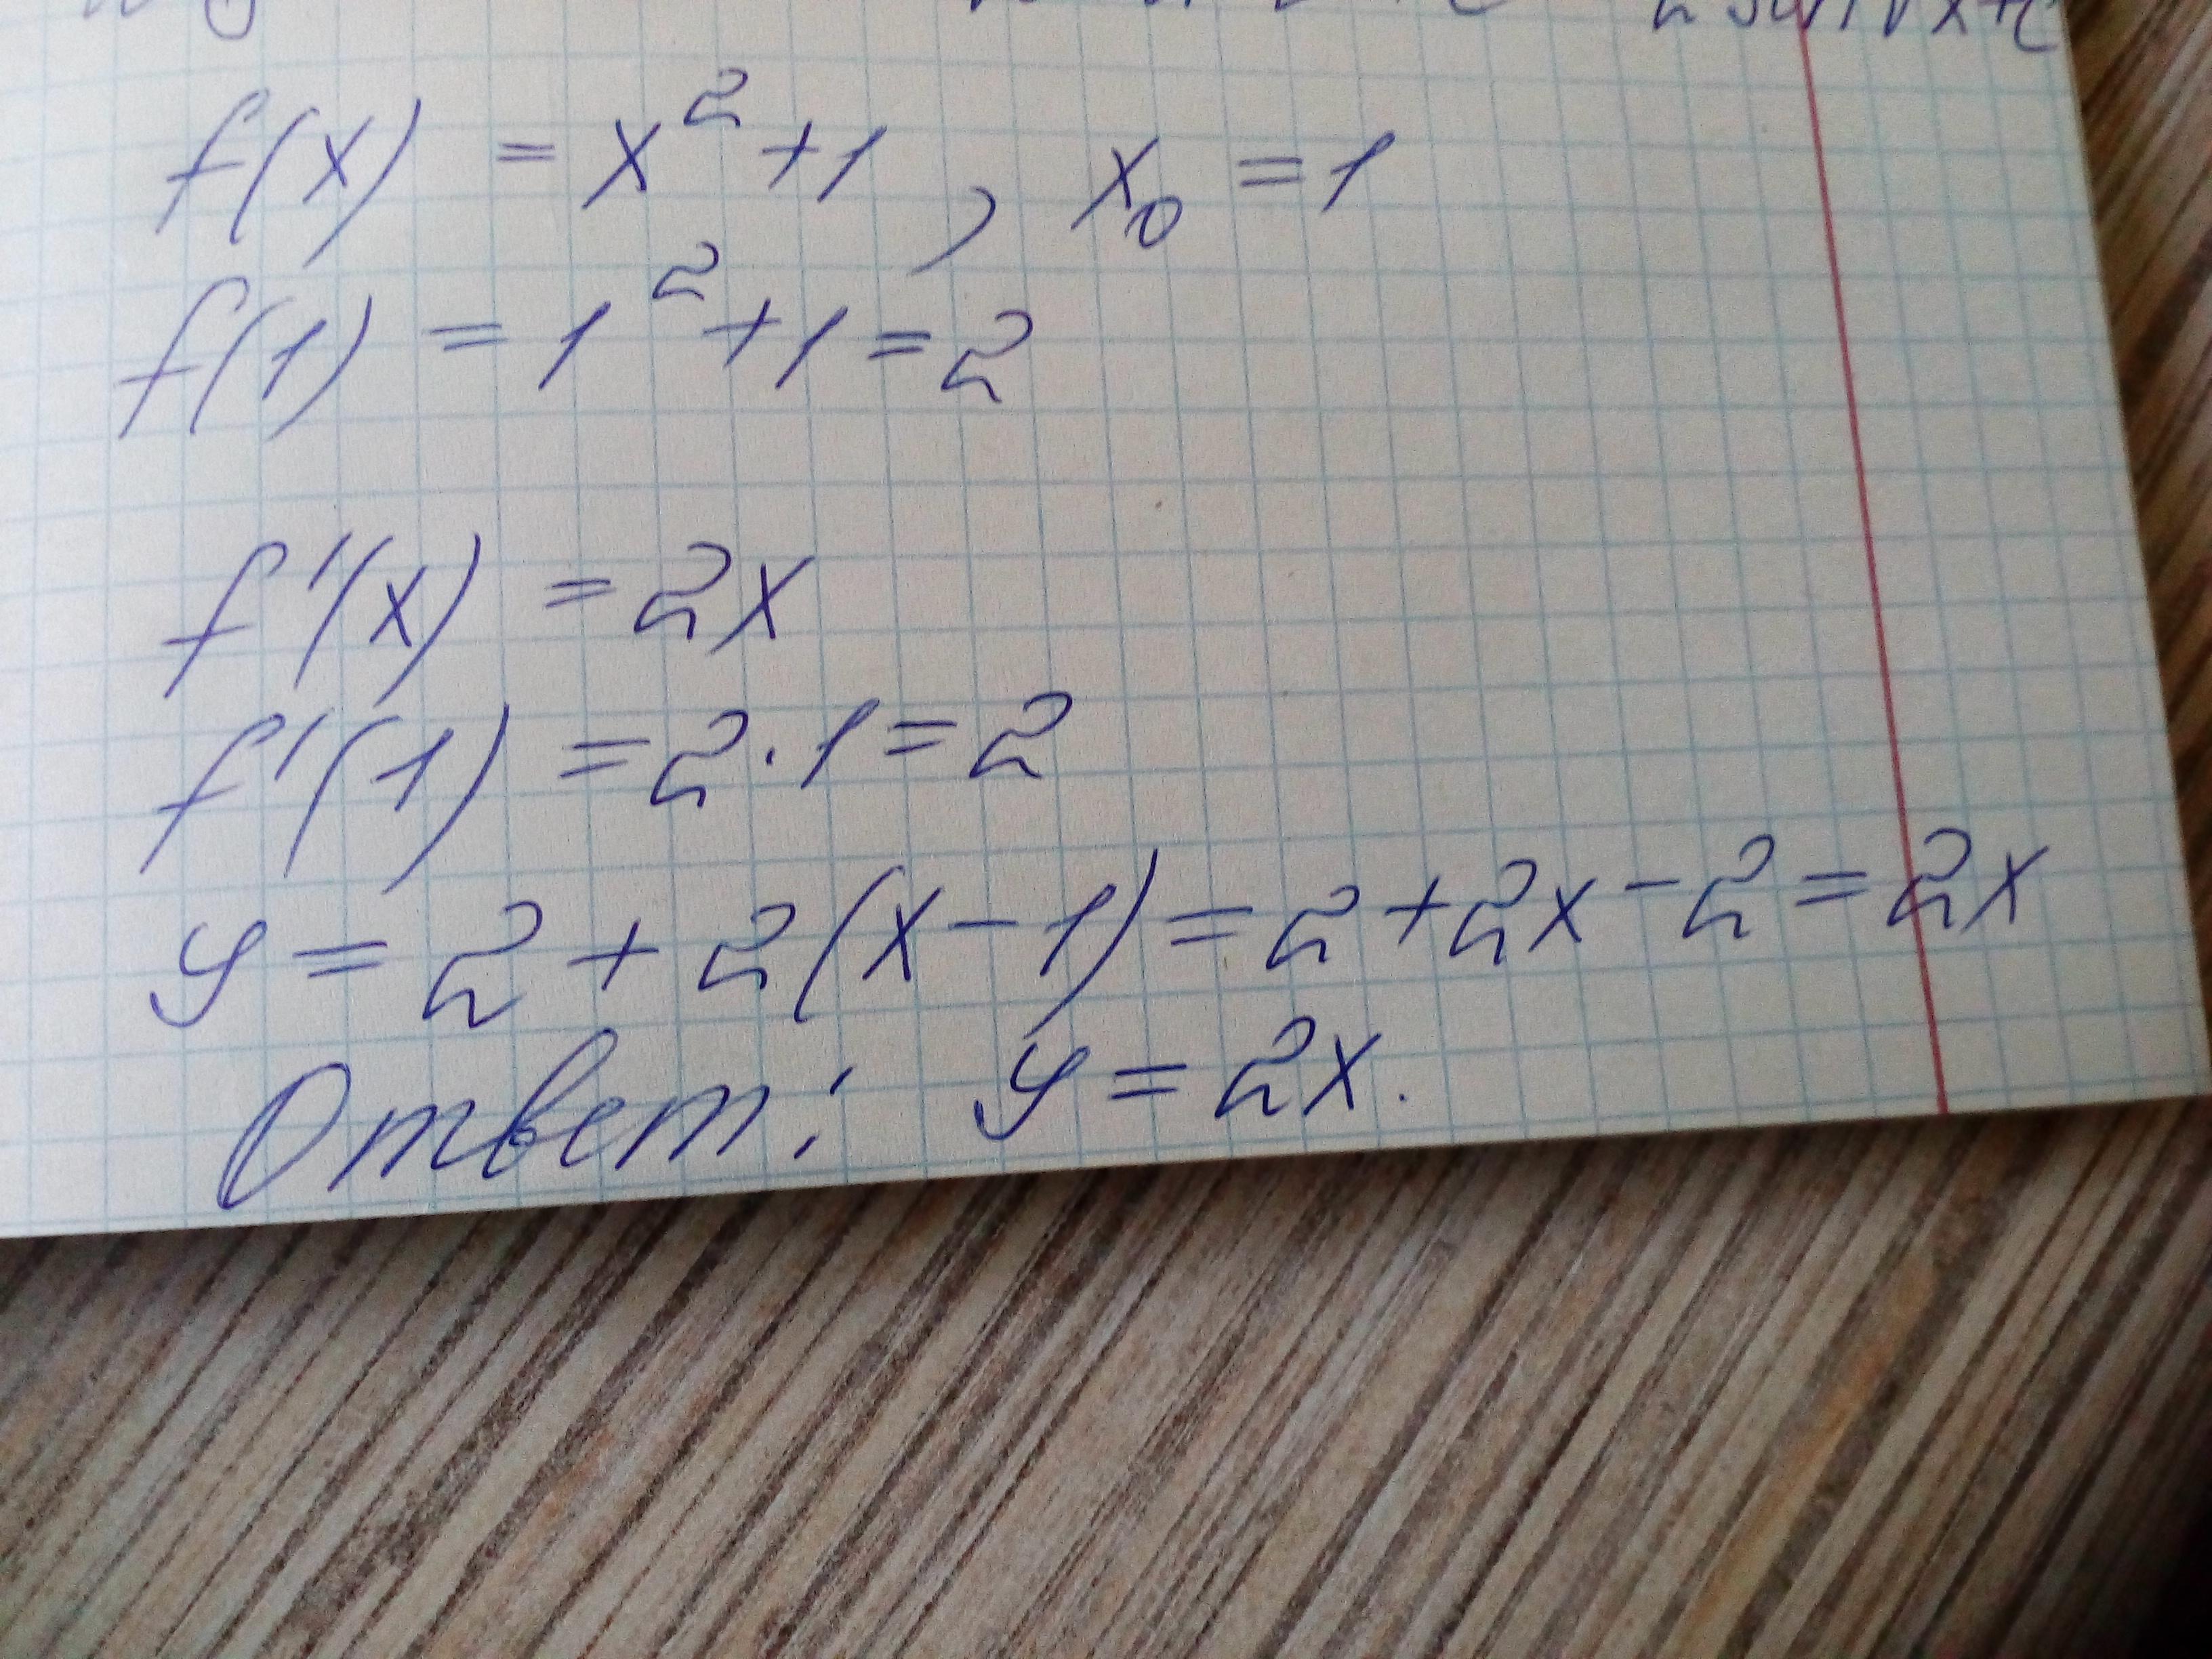 f(x) = x² + 1, x₀ = 1
f(1) = 1² + 1 = 2
f'(x) = 2x
f'(1) = 2 · 1 = 2
y = 2 + 2(x - 1) = 2 + 2x - 2 = 2x
Ответ: y = 2x.